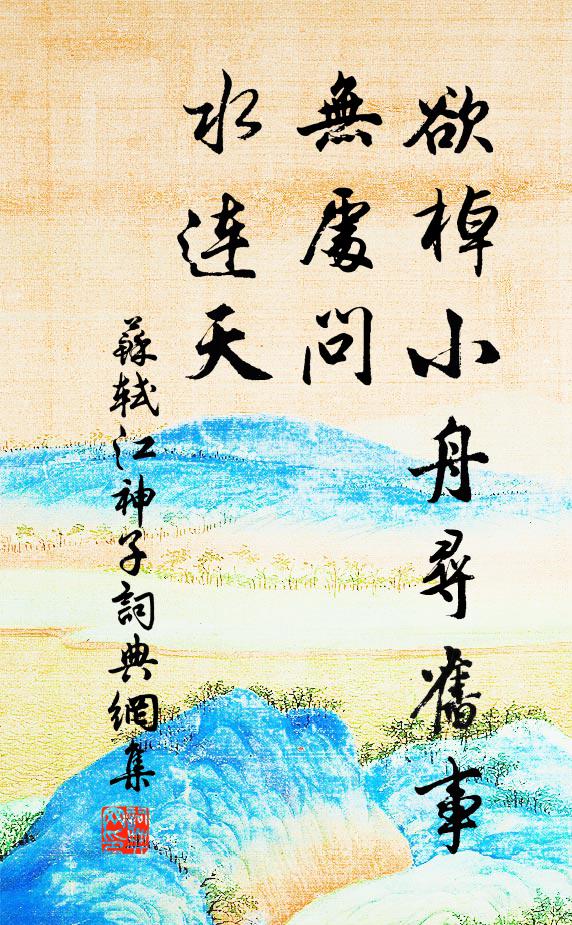 欲棹小舟尋舊事
無處問
水連天
蘇軾江神子詞典網集